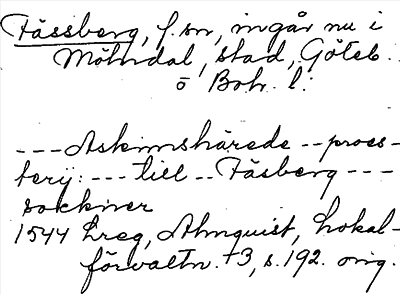 Fässberg, f. sn, ingår nu i
Mölndal, stad, Göteb.
o Boh. l:
---Askimshärede--proes-
terij:---till--Fäsberg---
sockner
1544 Lreg, Almquist, Lokal-
förvaltn. +3, s. 192. orig.